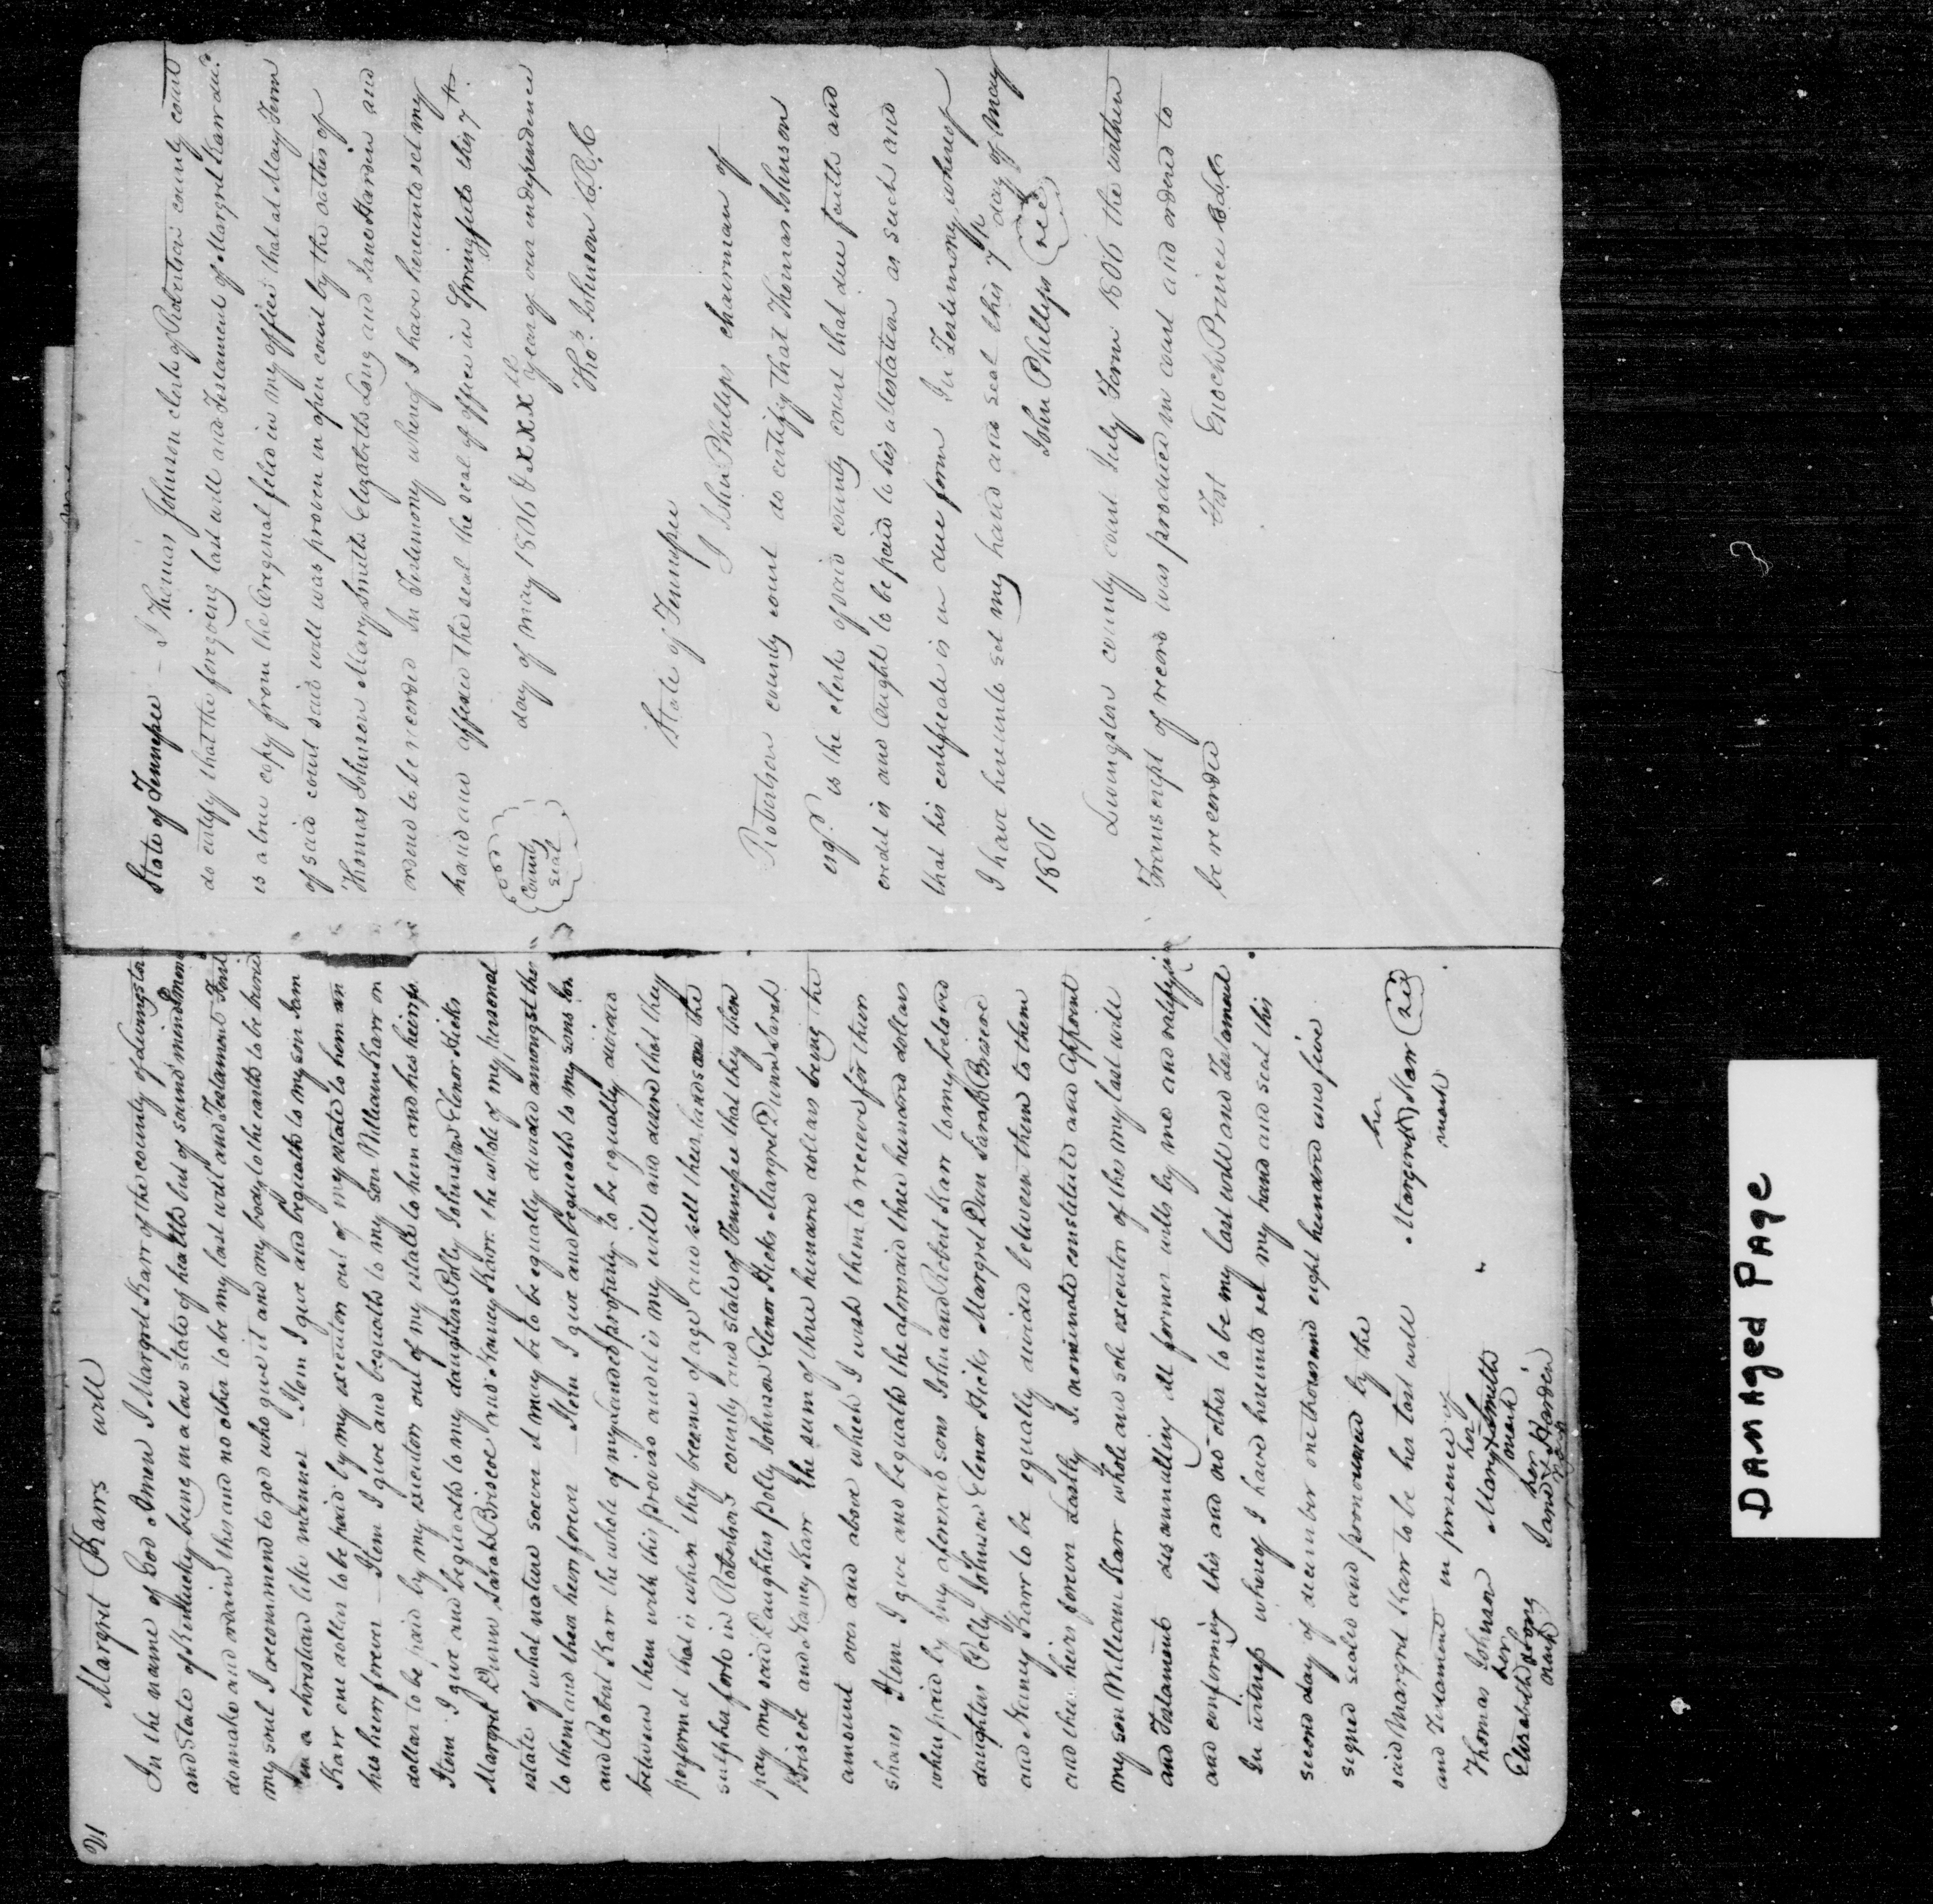 21
Margret Karrs will
In the name of God Amen I Margret Karr of the county of Livingston
and State of Kentucky being in a low state of health but of sound mind &
do make and ordain this and no other to be my last will and Testament First
my soul I recommend to god who gave it and my body to the earth to be buried
in a christian like manner - Item I give and bequath to my son
Karr one dollar to be paid by my executor out of my estate to him an
his heirs forever - Item I give and bequath to my son William Karr on
dollar to be paid by my executor out of my estate to him and his heirs fo
Item I give and bequath to my daughters Polly Johnston Elenor Hicks
Margret Dunn Sarah Briscoe and Nancy Karr the whole of my personal
estate of what nature soever it may be to be equally divided amongst them
to them and their heirs forever - Item I give and bequath to my sons
and Robert Karr the whole of my landed property to be equally divided
between them with this proviso and it is my will and desire that they
perform that is when they become of age and sell their lands on the
sulpher fork in Robertson county and state of Tennessee that they then
pay my said Daughters Polly Johnson Elenor Hicks Margret Dunn Sarah
Briscoe and Nancy Karr the sum of three hundred dollars being the
amount over and above which I wish them to receive for their
shares Item I give and bequath the aforesaid three hundred dollars
when paid by my aforesaid sons John and Robert Karr to my beloved
daughters Polly Johnson Elenor Hicks Margret Dun Sarah Briscoe
and Nancy Karr to be equally divided between them to them
and their heirs forever Lastly I nominate constitute and appoint
my son William Karr whole and sole executor of this my last will
and Testament disannulling all former wills by me and ratifying
and confirming this and no other to be my last will and Testament
In witness whereof I have hereunto set my hand and seal this
second day of december one thousand eight hundred and five
signed sealed and pronounced by the
said Margret Karr to be her last will
and Testament in presence of
her
Margret Karr
mark
Thomas Johnson
her
Mary x Smith
mark
her
Elizabeth Long
mark
her
Jane x Harden
mark
State of Tennessee - I Thomas Johnson clerk of Robertson county court
do certify that the foregoing last will and Testament of Margret Karr decd.
is a true copy from the Original filed in my office that at May Term
of said court said will was proven in open court by the oathes of
Thomas Johnson Mary Smith Elizabeth Long and Jane Harden and
ordered to be recorded In Testimony whereof I have hereunto set my
hand and affixed the seal the seal of office in Springfield this 7th
day of may 1806 & XXX th year of our independence
County
seal
Thos. Johnson C.R.C
State of Tennessee
I John Phellips chairman of
Robertson county court do certify that Thomas Johnson
esqr. is the clerk of said county court that due faith and
credit is and Ought to be paid to his attestation as such and
that his certificate is in due form In Testimony whereof
I have hereunto set my hand and seal this 7th day of May
1806
John Phellips
Livingston county court July Term 1806 the within
Transcript of record was produced in court and ordered to
be recorded
Test Enoch Prince
DAMAged PAge